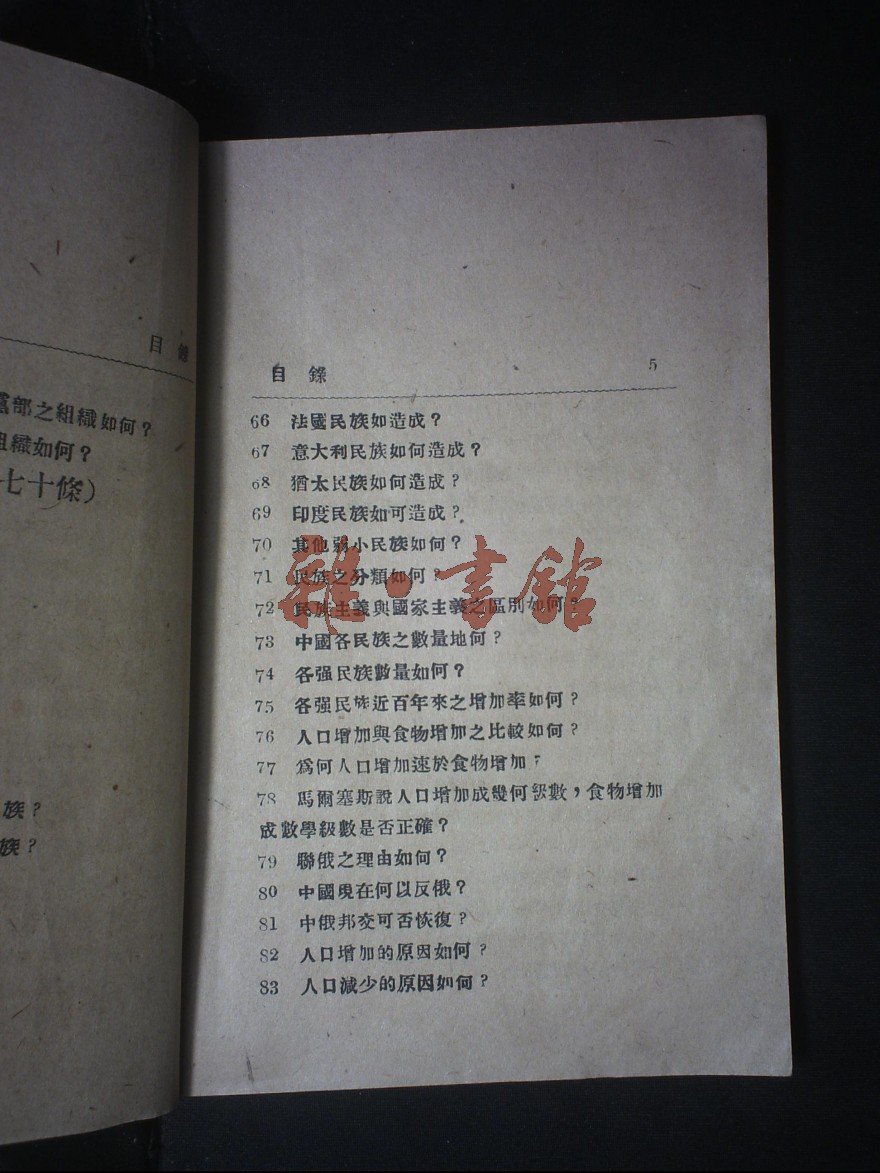 目 錄
黨部之組織如何？
組織如何？
七十條）
族？
族？
目 錄 5
66 法國民族如造成？
67 意大利民族如何造成？
68 猶太民族如何造成？
69 印度民族如可造成？
70 其他弱小民族如何？
71 民族之分類如何？
72 民族主義與國家主義之區別如何？
73 中國各民族之數量地何？
74 各强民族數量如何？
75 各强民族近百年來之增加率如何？
76 人口增加與食物增加之比較如何？
77 爲何人口增加速於食物增加？
78 馬爾塞斯說人口增加成幾何級數，食物增加
成數學級數是否正確？
79 聯俄之理由如何？
80 中國現在何以反俄？
81 中俄邦交可否恢復？
82 人口增加的原因如何？
83 人口減少的原因如何？
雜·書館